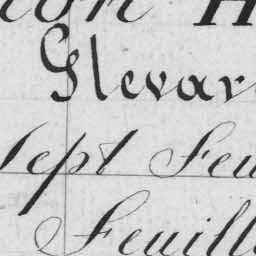 ion H
Glevar
Sept Feu
Feuill